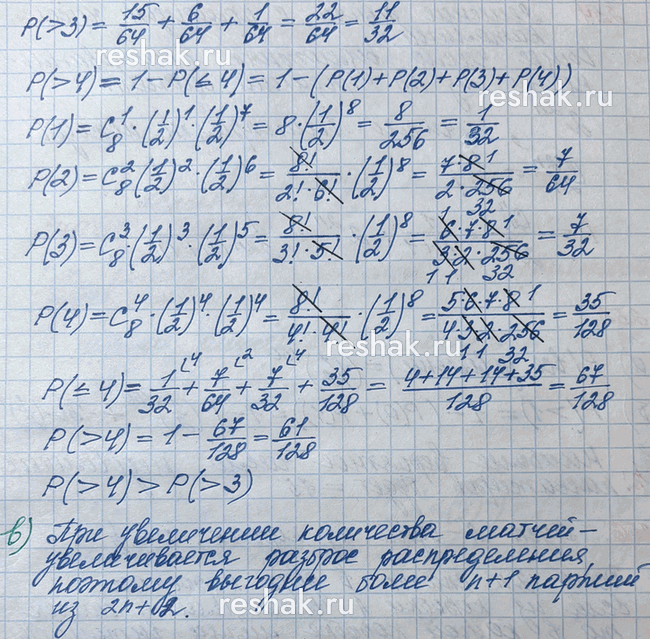 P(>3) = 15/64 + 6/64 + 1/64 = 22/64 = 11/32
reshak.ru
P(>4) = 1 - P(≤4) = 1 - (P(1)+P(2)+P(3)+P(4))
reshak.ru
P(1) = C₈¹ · (1/2)¹ · (1/2)⁷ = 8 · (1/2)⁸ = 8/256 = 1/32
P(2) = C₈² · (1/2)² · (1/2)⁶ = 8!/(2!·6!) · (1/2)⁸ = 7·8/(2·256) = 7/64
1 32
P(3) = C₈³ · (1/2)³ · (1/2)⁵ = 8!/(3!·5!) · (1/2)⁸ = 6·7·8/(3·2·256) = 7/32
1 1 32
P(4) = C₈⁴ · (1/2)⁴ · (1/2)⁴ = 8!/(4!·4!) · (1/2)⁸ = 5·6·7·8/(4·3·2·256) = 35/128
reshak.ru
1 1 32
P(≤4) = 1/32 + 7/64 + 7/32 + 35/128 = (4+14+14+35)/128 = 67/128
P(>4) = 1 - 67/128 = 61/128
P(>4) > P(>3)
в) При увеличении количества матчей -
увеличивается разброс распределения,
поэтому выгоднее более n+1 партий
из 2n+2.
reshak.ru